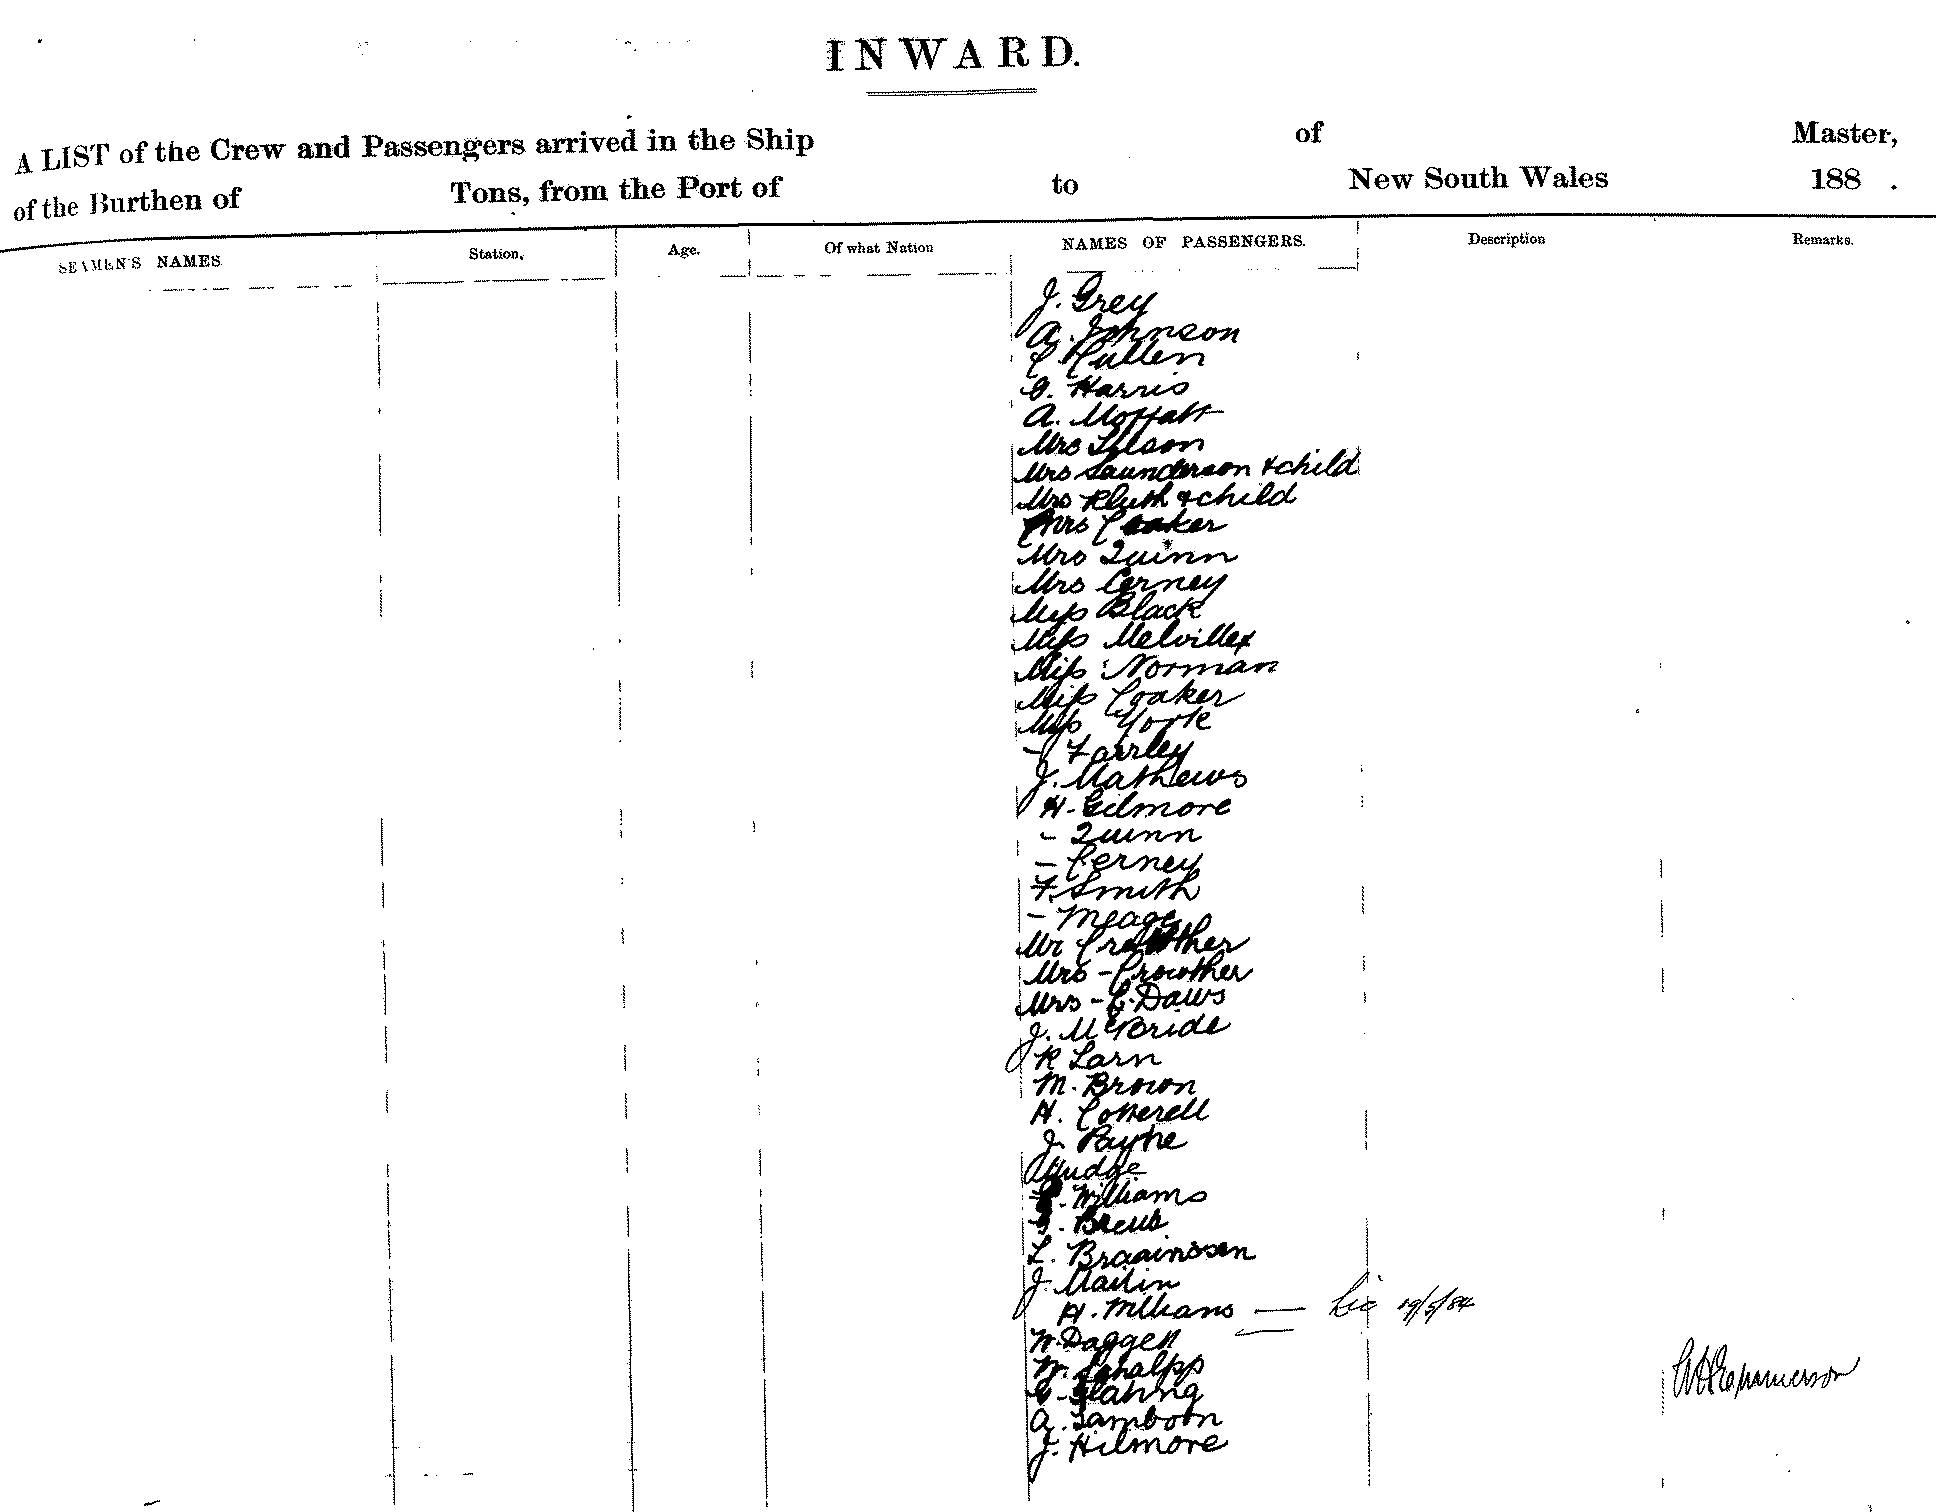 INWARD.
A LIST of the Crew and Passengers arrived in the Ship of Master,
of the Burthen of Tons, from the Port of to New South Wales 188 .
SEAMEN'S NAMES Station, Age. Of what Nation NAMES OF PASSENGERS. Description Remarks.
J. Grey
A. Johnson
C. Cullen
G. Harris
A. Moffatt
Mrs
Mrs Saunderson & child
Mrs & child
Mrs Coaker
Mrs Quinn
Mrs Cerney
Miss Black
Miss Melville
Miss Norman
Miss Coaker
Miss York
- Farrley
J. Mathews
H. Gilmore
- Quinn
- Cerney
F. Smith
-
Mr Crowther
Mrs - Crowther
Mrs - C. Daws
J. McBride
R Larn
M. Brown
H. Cotterell
J. Payne
Mudge
Williams
L.
J. Martin
H. Williams — 19/5/84
W. Daggett
W. Schalpp
A. Tamboon
J. Hilmore